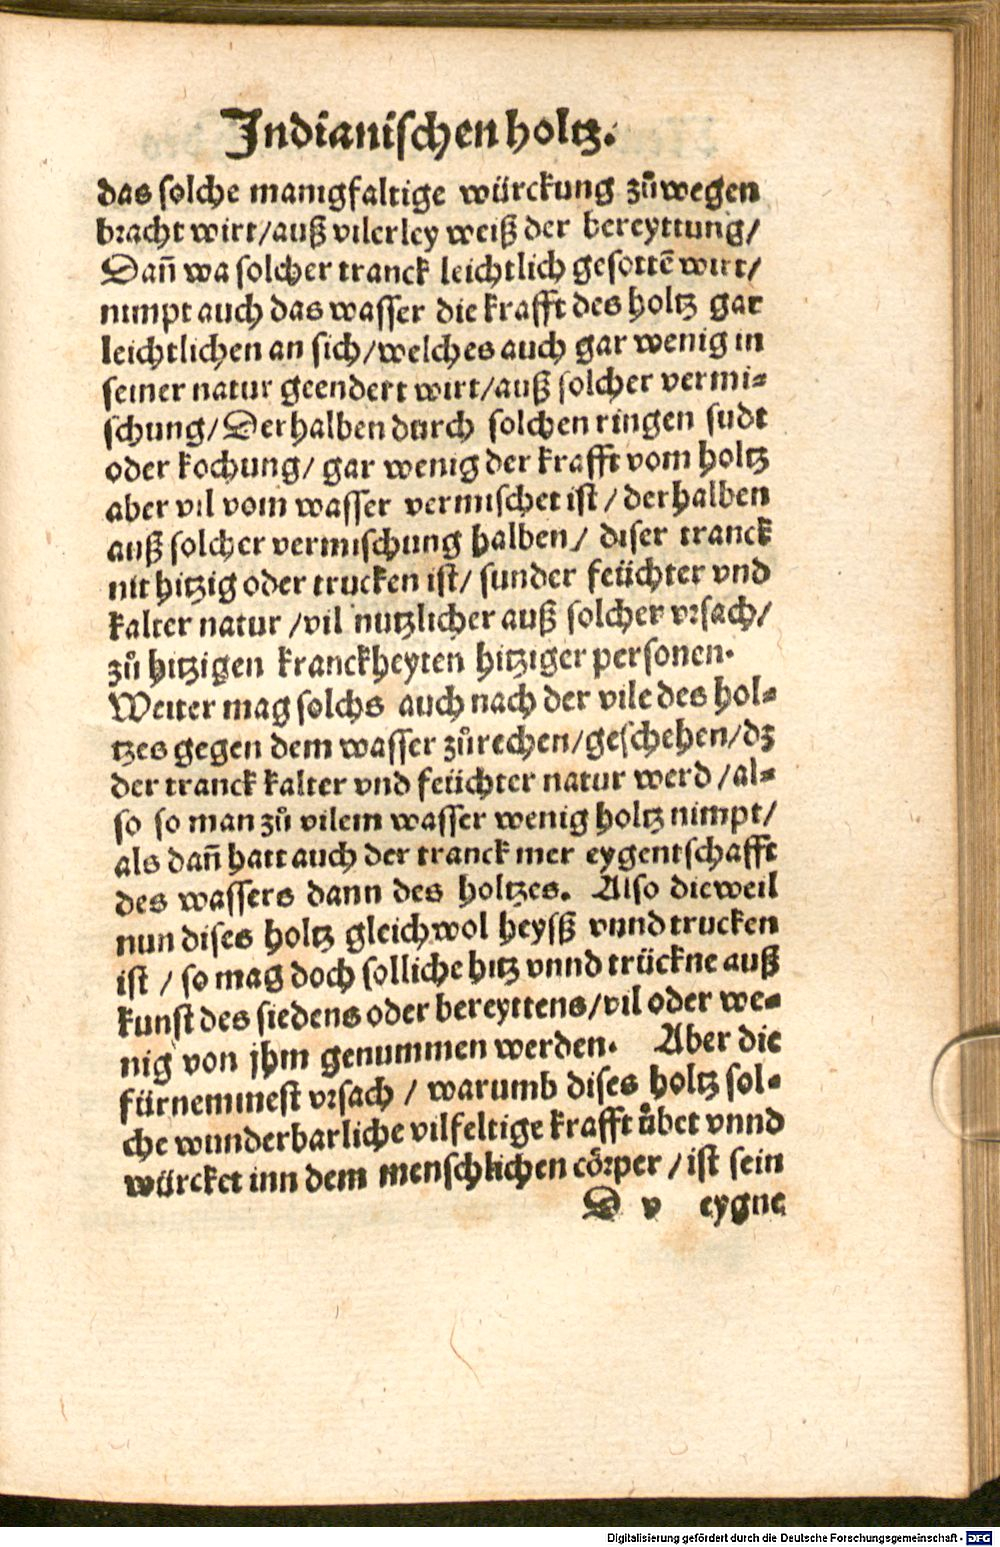 Jndianischen holtz.
das solche manigfaltige würckung zů wegen
bracht wirt/auß vilerley weiß der bereyttung/
Dañ wa solcher tranck leichtlich gesottẽ wirt/
nimpt auch das wasser die krafft des holtz gar
leichtlichen an sich/welches auch gar wenig in
seiner natur geendert wirt/auß solcher vermi⸗
schung/Derhalben durch solchen ringen sudt
oder kochung/ gar wenig der krafft vom holtz
aber vil vom wasser vermischet ist / derhalben
auß solcher vermischung halben/ diser tranck
nit hitzig oder trucken ist/ sunder feüchter vnd
kalter natur /vil nutzlicher auß solcher vrsach/
zů hitzigen kranckheyten hitziger personen.
Weiter mag solchs auch nach der vile des hol⸗
tzes gegen dem wasser zůrechen/geschehen/dz
der tranck kalter vnd feüchter natur werd /al⸗
so so man zů vilem wasser wenig holtz nimpt/
als dañ hatt auch der tranck mer eygentschafft
des wassers dann des holtzes. Also dieweil
nun dises holtz gleichwol heysß vnnd trucken
ist / so mag doch solliche hitz vnnd trückne auß
kunst des siedens oder bereyttens/vil oder we⸗
nig von jhm genummen werden. Aber die
fürnemmest vrsach / warumb dises holtz sol⸗
che wunderbarliche vilfeltige krafft ůbet vnnd
würcket inn dem menschlichen cörper /ist sein
D v eygne
Digitalisierung gefördert durch die Deutsche Forschungsgemeinschaft - DFG